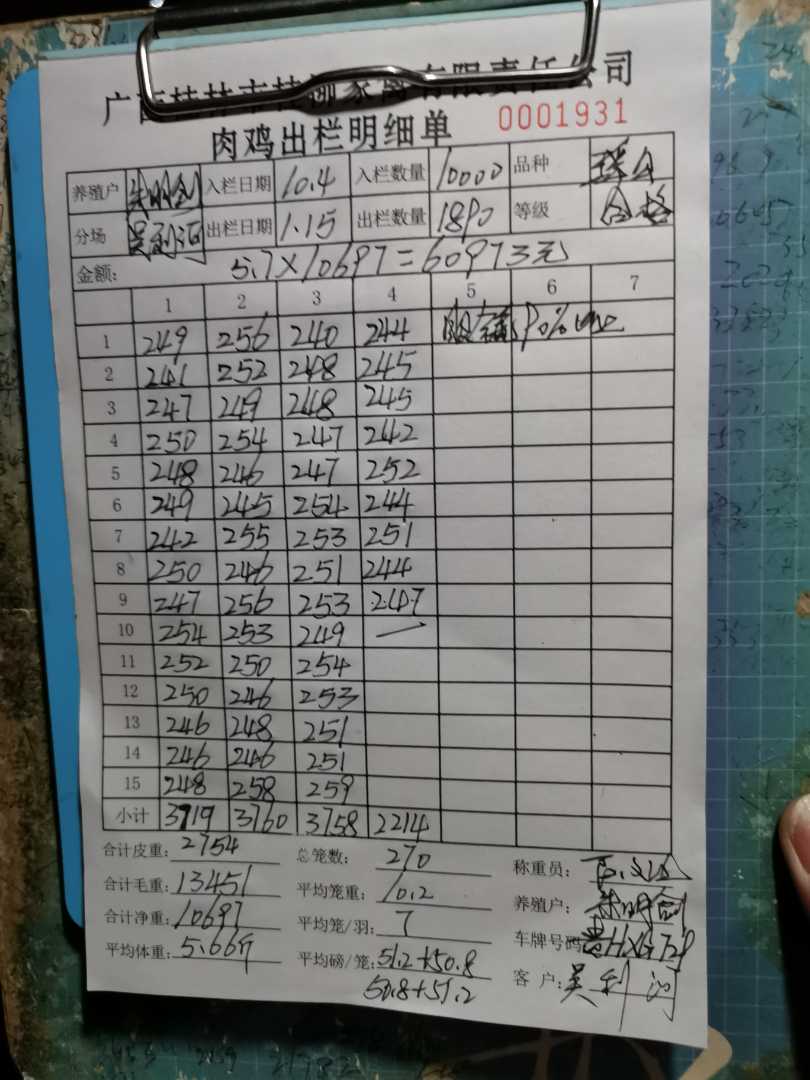 广西桂林市桂柳家禽有限责任公司
肉鸡出栏明细单 0001931
养殖户 朱明剑 入栏日期 10.4 入栏数量 10000 品种
分场 吴利河 出栏日期 1.15 出栏数量 1890 等级 合格
金额: 5.7×10697=60973元
1 2 3 4 5 6 7
1 249 256 240 244 90%
2 241 252 248 245
3 247 249 248 245
4 250 254 247 242
5 248 246 247 252
6 249 245 254 244
7 242 255 253 251
8 250 246 251 244
9 247 256 253 247
10 254 253 249 —
11 252 250 254
12 250 246 253
13 246 248 251
14 246 246 251
15 248 258 259
小计 3719 3760 3758 2214
合计皮重: 2754 总笼数: 270 称重员:
合计毛重: 13451 平均笼重: 10.2 养殖户: 朱明剑
合计净重: 10697 平均笼/羽: 7 车牌号码
平均体重: 5.66斤 平均磅/笼: 51.2+50.8 客户: 吴利河
50.8+51.2